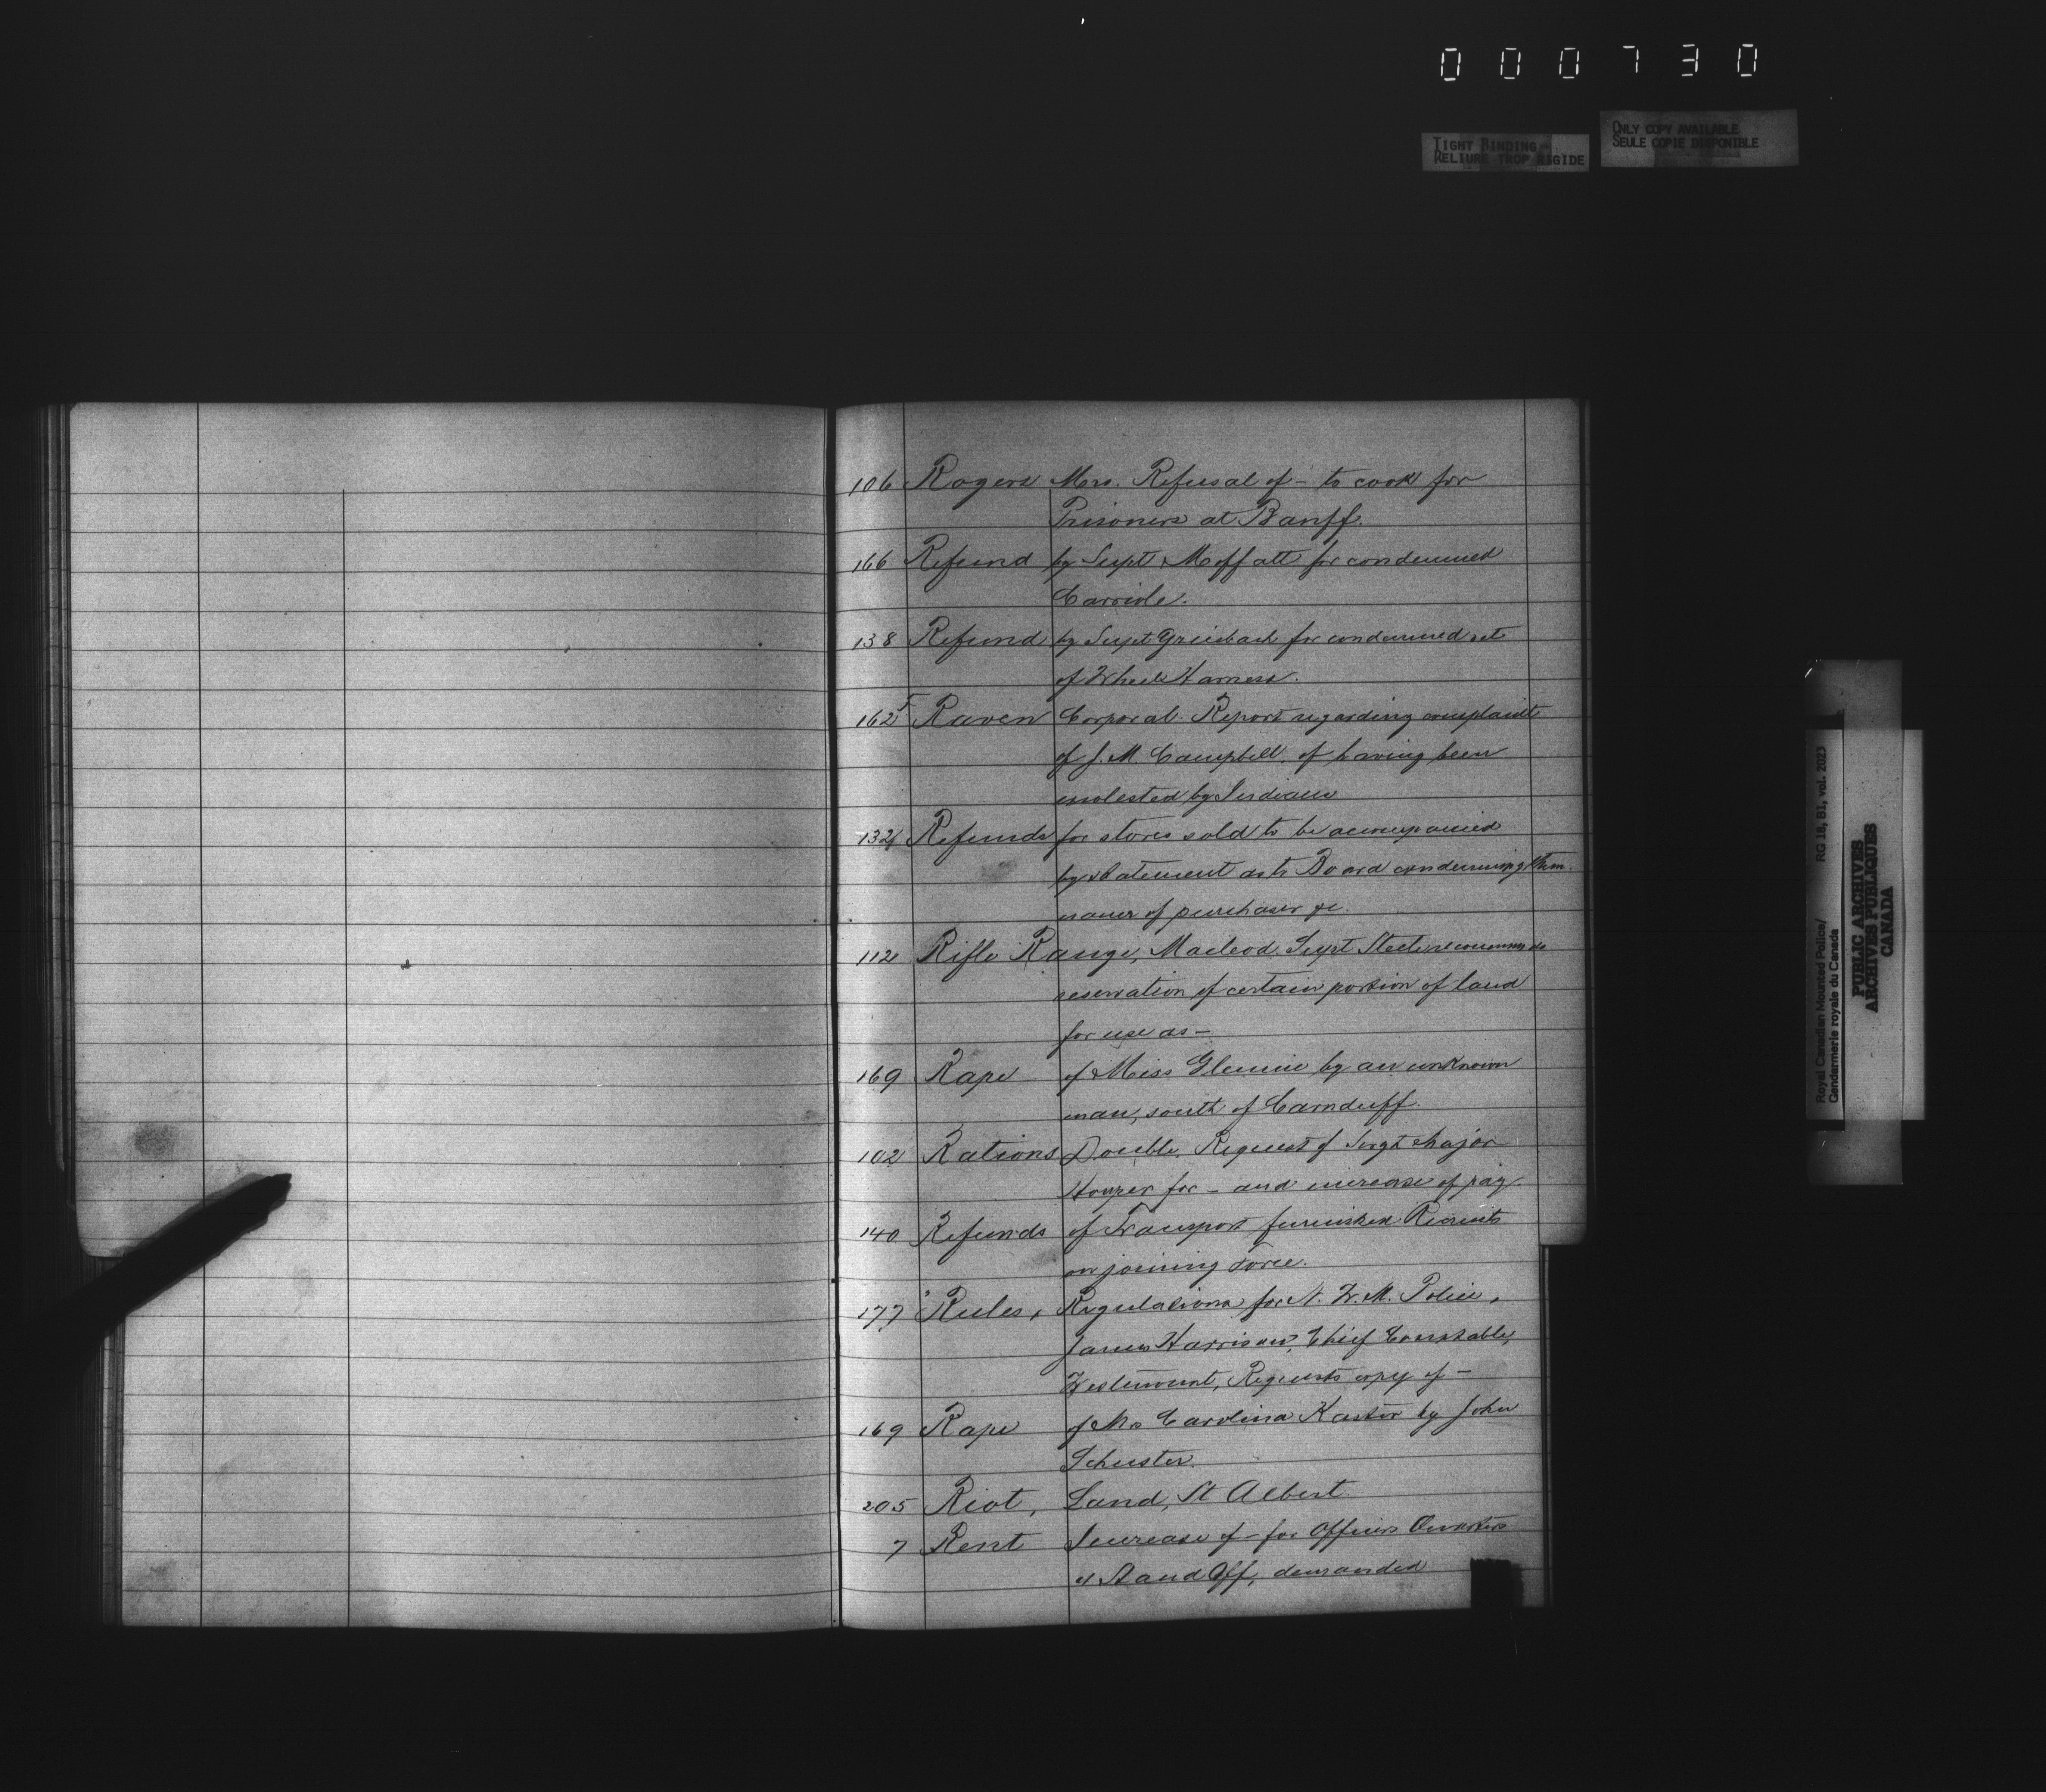 000730
TIGHT BINDING
RELIURE TROP RIGIDE
ONLY COPY AVAILABLE
SEULE COPIE DISPONIBLE
106 Rogers Mrs. Refusal of - to cook for
Prisoners at Banff.
166 Refund by Supt Moffatt for condemned
Carriole.
138 Refund by Supt Griesbach for condemned set
of Wheel Harness.
162 Raven Corporal. Report regarding complaint
of J. M. Campbell, of having been
molested by Indians
132 Refunds for stores sold to be accompanied
by statement as to Board condemning them
name of purchaser &c.
112 Rifle Range, Macleod. Supt Steele recommends
reservation of certain portion of land
for use as -
169 Rape of Miss by an unknown
man, south of Carnduff.
102 Rations Double, Request of Sergt Major
for - and increase of pay.
140 Refunds of Transport furnished Recruits
on joining Force.
177 Rules, Regulations for N. W. M. Police,
James Harrison, Chief Constable,
Westmount, Requests copy of -
169 Rape of Mrs Carolina Kastor by John
Schuster.
205 Riot, Land, St Albert.
7 Rent Increase of - for Officers Quarters
at Stand Off, demanded
Royal Canadian Mounted Police/
Gendarmerie royale du Canada
RG 18, B1, vol. 2023
PUBLIC ARCHIVES
ARCHIVES PUBLIQUES
CANADA